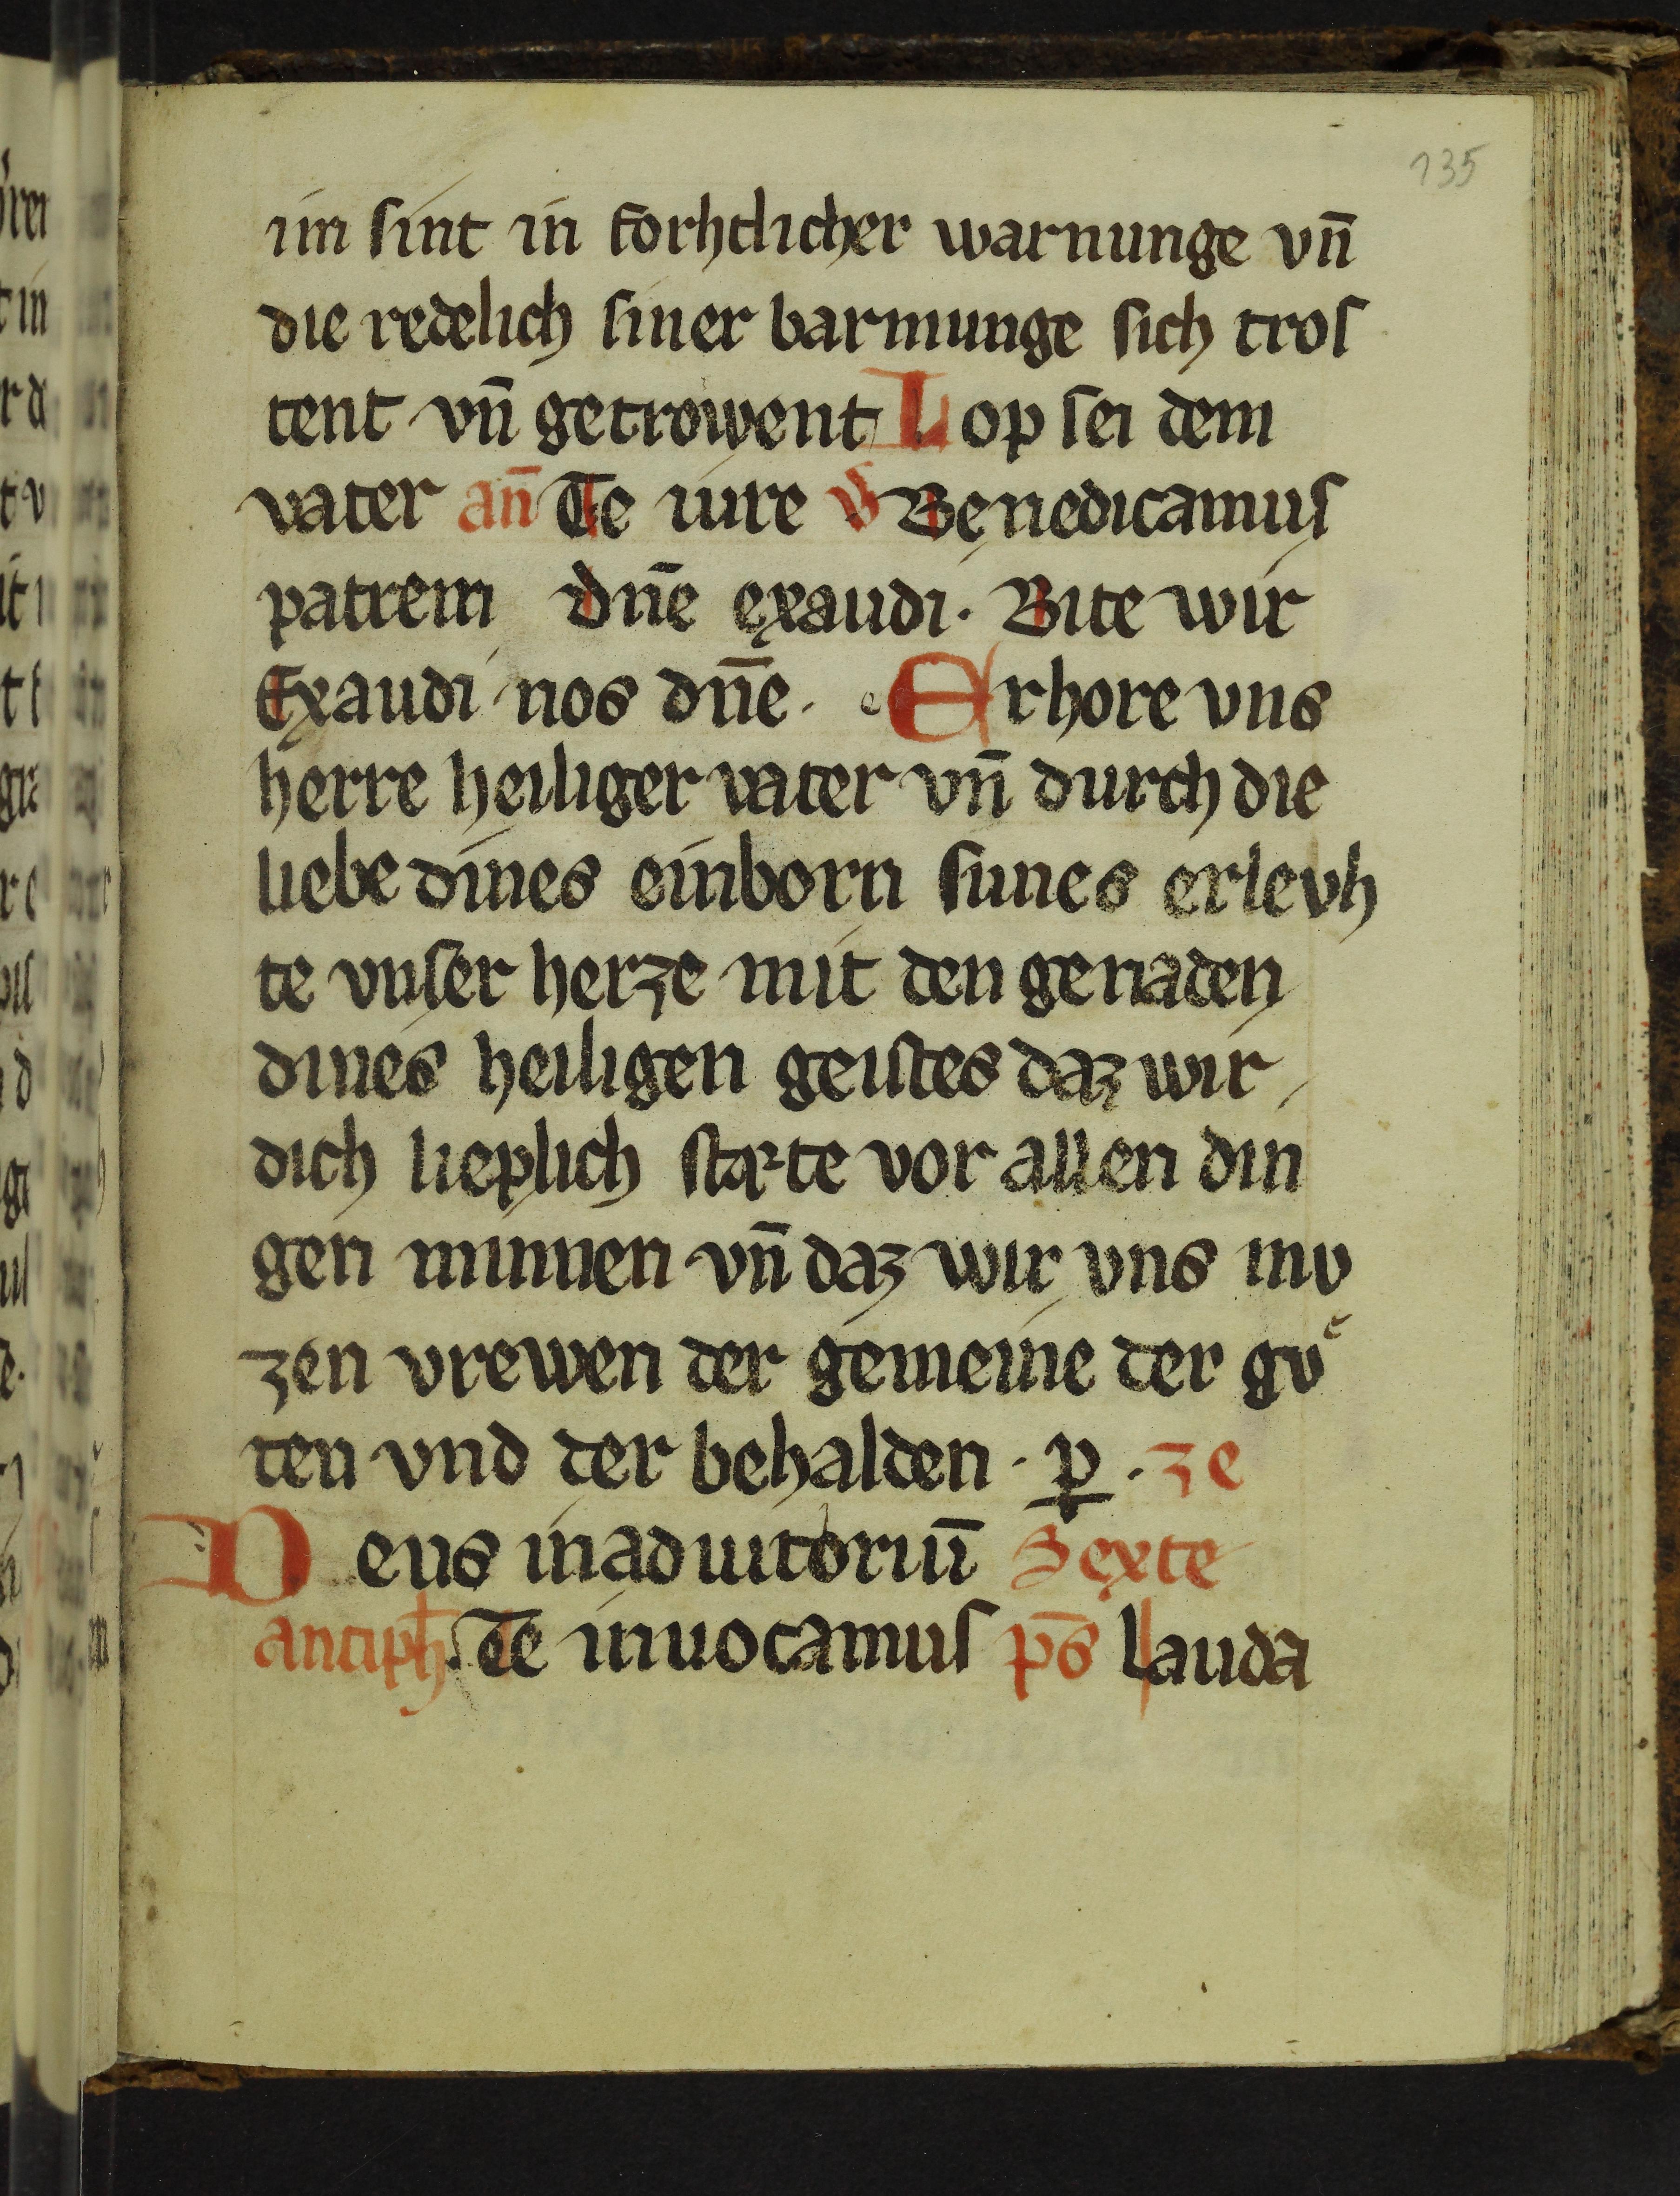 135
im sint in forhtlicher warnunge vn̄
die redelich siner barmunge sich tros
tent vn̄ getrowent Lop sei dem
vater an̄ Te iure v̄ Benedicamus
patrem dn̄e exaudi. Bite wir
Exaudi nos dn̄e. Erhore vns
herre heiliger vater vn̄ durch die
liebe dines einborn sunes erlevh
te vnser herze mit den genaden
dines heiligen geistes daz wir
dich lieplich starte vor allen din
gen minnen vn̄ daz wir vns mv
zen vrewen der gemeine der gvͤ
ten vnd der behalden. ꝑ. ze
Deus in adiutoriū Sexte
antiph̄. Te inuocamus ps̄ lauda